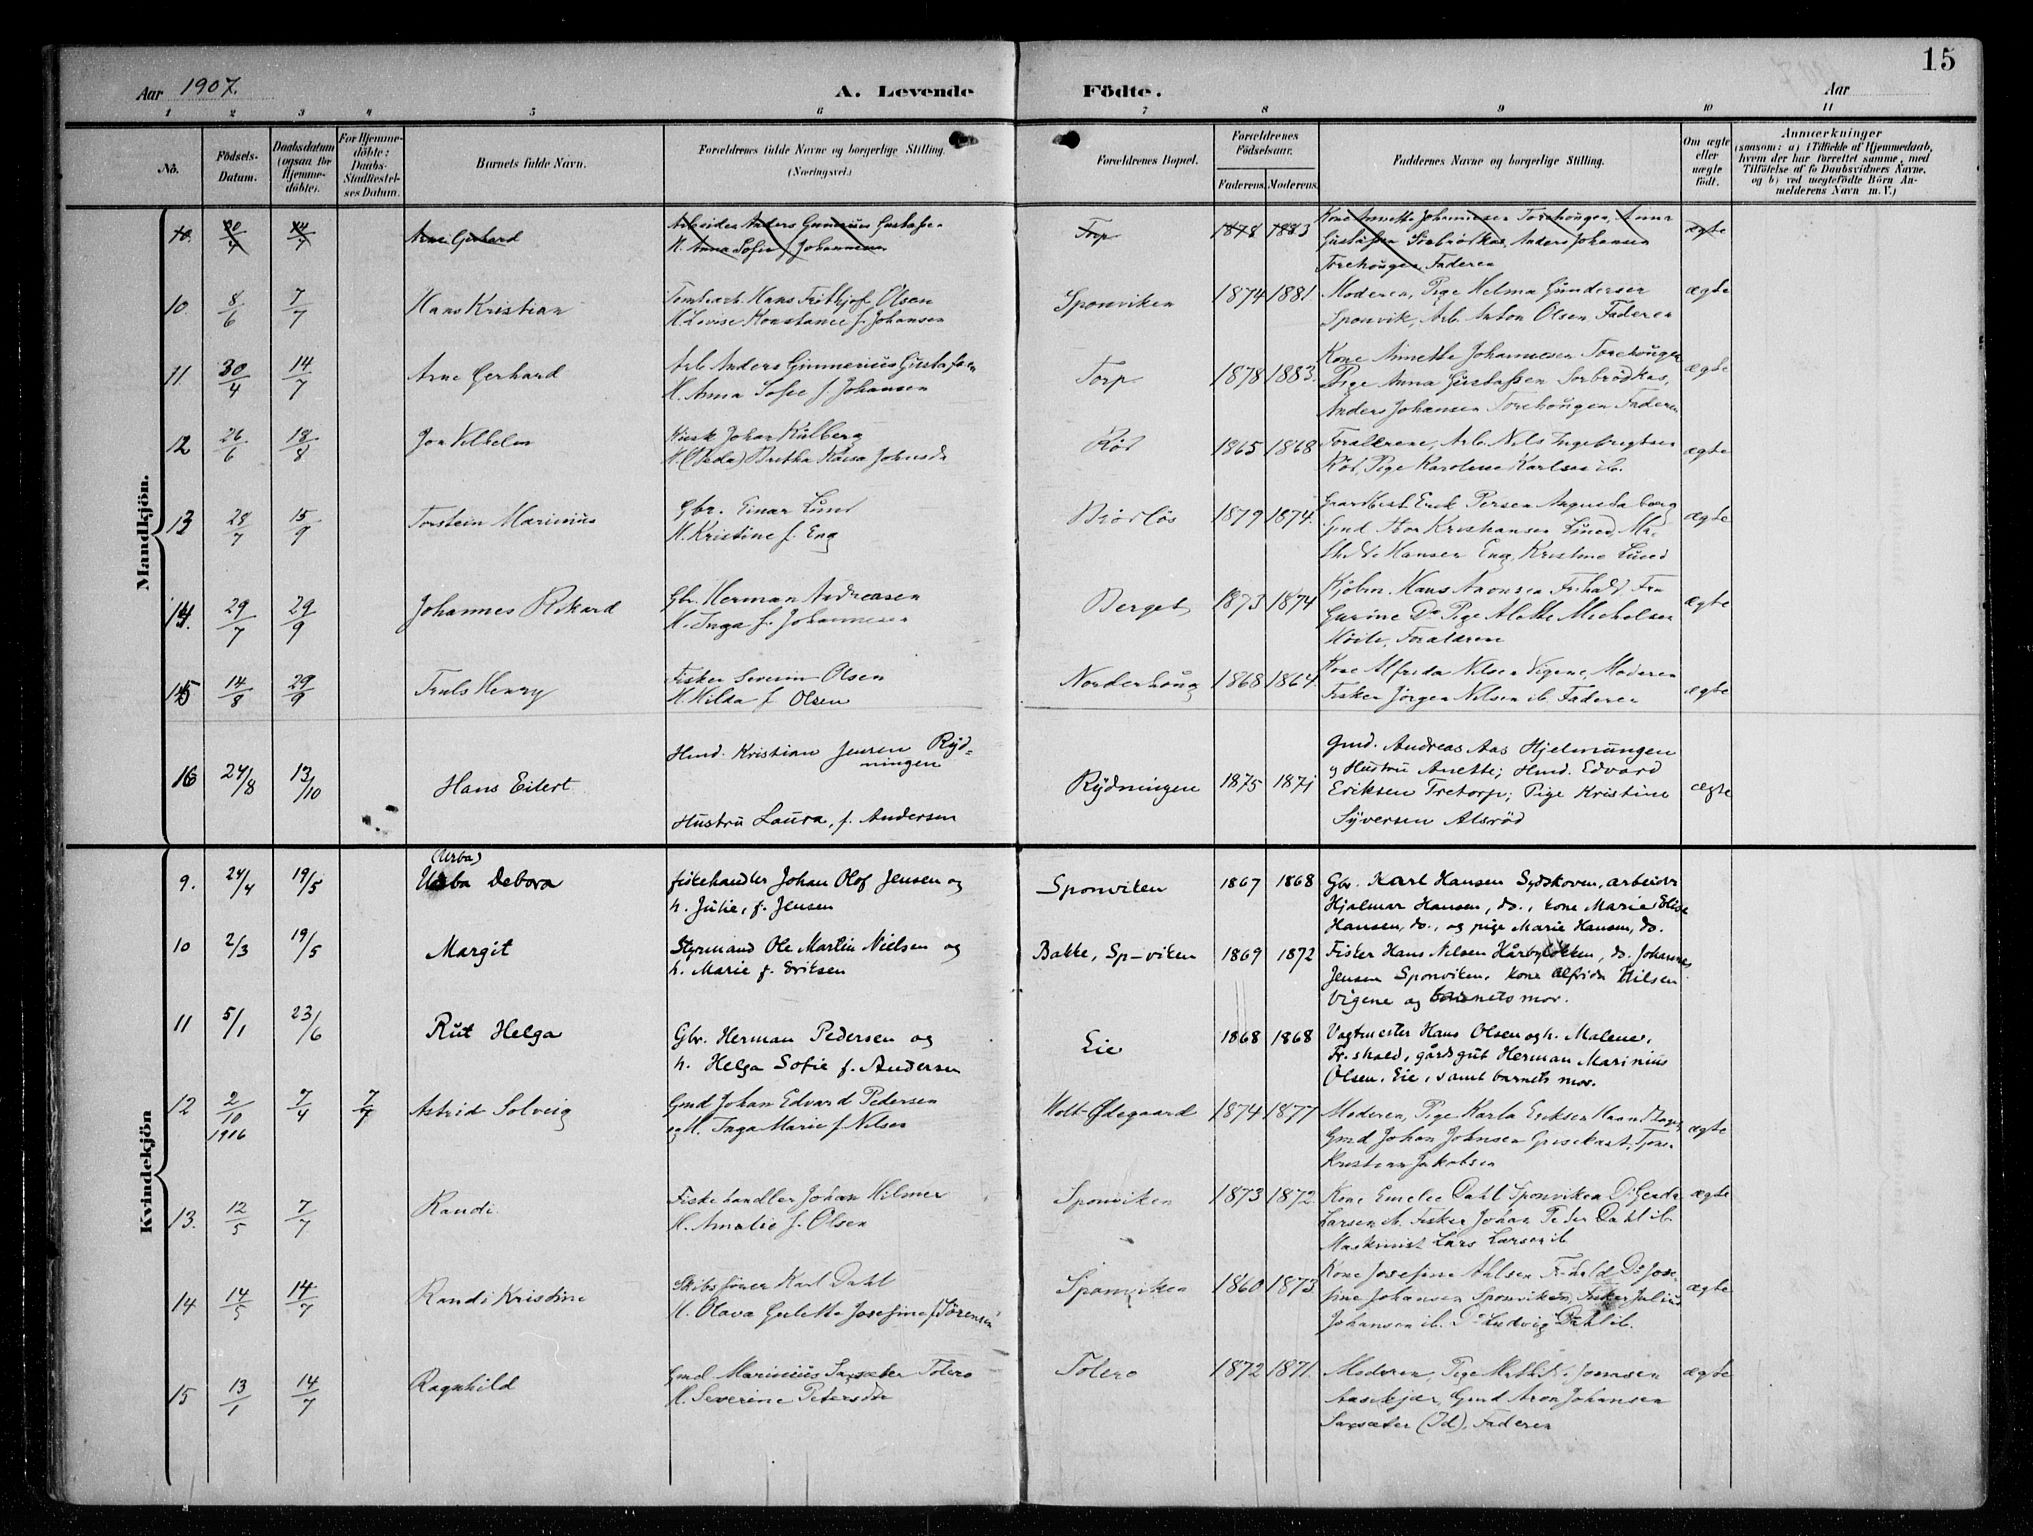 15
Aar 1907. A. Levende Födte. Aar
1 2 3 4 5 6 7 8 9 10 11
No. Födsels-Datum. Daabsdatum (ogsaa for Hjemmedöbte). For Hjemmedöbte: Daabs-Stadfæstelses Datum. Barnets fulde Navn. Forældrenes fulde Navne og borgerlige Stilling. (Næringsvei.) Forældrenes Bopæl. Forældrenes Födselsaar. Faderens. Moderens. Faddernes Navne og borgerlige Stilling. Om ægte eller uægte født. Anmærkninger (saasom: a) i Tilfælde af Hjemmedaab, hvem der har forrettet samme, med Tilföielse af to Daabsvidners Navne, og b) ved uægtefödte Börn Anmelderens Navn m. V.)
Mandkjön.
10. 30/4 14/7 Arne Gerhard Arbeider Anders Gunerius Gustafsen Torp 1878 1883 Kone Annette Johannesen Torehougen, Anna ægte
H. Anna Sofie f Johannesen Gustafsen Sorbrödkas, Anders Johansen
Torehougen Faderen
10. 8/6 7/7 Hans Kristian Tomtearb. Hans Frithjof Olsen Sponviken 1874 1881. Moderen, Pige Helma Gundersen ægte
H. Lovise Konstance f. Johansen Sponvik, Arb. Anton Olsen Faderen
11. 30/4 14/7 Arne Gerhard Arb Anders Gunnerius Gustafsen Torp 1878 1883. Kone Annette Johannesen Torehougen ægte
H. Anna Sofie f Johansen Pige Anna Gustafsen Sorbrödkas,
Anders Johansen Torehougen Faderen
12 26/6 18/8 Jon Vilhelm Kusk Johan Kulberg Röd 1865 1868 Forældrene, Arb. Nils Ingebrigtsen ægte
H (Beda) Britha Kaisa Johnsdr Röd, Pige Karoline Karlsen ib.
13 28/7 15/9 Torstein Marinius Gbr. Einar Lund Brödlös 1879 1874. Erik Persen Augustaborg ægte
H. Kristine f. Eng Gmd Kristiansen Lund, Ma-
Hansen Eng, Kristine Lund
14. 29/7 29/9 Johannes Rikard Gbr. Herman Andreasen Berget 1873 1874 Kjöbm Hans Aronsen Frhald Fru ægte
H. Inga f. Johannesen Gurine Do Pige Alette Michelsen
Forældrene
15 14/8 29/9 Truls Henry Fisker Severin Olsen Norderhoug 1868 1864. Kone Alfrida Nilsen Vigene, Moderen ægte
H. Hilda f Olsen Fisker Jörgen Nilsen ib. Faderen
16 24/8 13/10 Hans Eilert Hmd. Kristian Jensen Ryd=
ningen Rydningen 1875 1871 Gmd. Andreas Aas Hjelmungen ægte
Hustru Laura, f. Andersen og Hustru Anette; Hmd. Edvard
Eriksen Tretorp; Pige Kristine
Syversen Alsröd
Kvindekjön
9. 24/4 19/5 (Urba) Urba Debora fiskehandler Johan Olof Jensen og Sponviken 1867 1868 Gbr. Karl Hansen Sydskoven, arbeider
h. Julie, f. Jensen Hjalmar Hansen, do., kone Marie Elise
Hansen, do., og pige Marie Hansen, do.
10 2/3 19/5 Margit Styrmand Ole Martin Nielsen og Bakke, Sp-viken 1869 1872 Fisker Hans Nilsen Hårbyløkken, do. Johannes
h. Marie f. Eriksen Jensen Sponviken, kone Alfrida Nilsen
Vigene og barnets mor.
11 5/1 23/6 Rut Helga Gbr. Herman Pedersen og Eie 1868 1868 Vagtmester Hans Olsen og h. Malene,
h. Helga Sofie f. Andersen Fr.shald, gårdsgut Herman Marinius
Olsen, Eie, samt barnets mor.
12 2/10 1906 7/4 7/7 Astrid Solveig Gmd Johan Edvard Pedersen Holt-Ödegaard 1874 1877 Moderen, Pige Karla Eriksen ægte
og H. Inga Marie f Nilsen Gmd Johan Johnsen
Kristian Jakobsen
13. 12/5 7/7 Randi Fiskehandler Johan Hilmer Sponviken 1873 1872. Kone Emelie Dahl Sponviken Do Gerda ægte
H. Amalie f. Olsen Larsen ib. Fisker Johan Peder Dahl ib.
Maskinist Lars Larsen ib
14 14/5 14/7 Randi Kristine Skibsförer Karl Dahl Sponviken 1860 1873. Kone Josefine Frhald Do Jose- ægte
H. Olava Gulette Josefine f Sörensen fine Johansen Sponviken, Fisker Julius
Johansen ib. Do Ludvig Dahl ib.
15 13/1 14/7 Ragnhild Gmd Marinius Saxæter Tolero Tolero 1872 1871. Moderen, Pige Jonsen ægte
H. Severine Petersdtr Aasekjær, Gmd Aron Johansen
Saxsæter (Id), Faderen